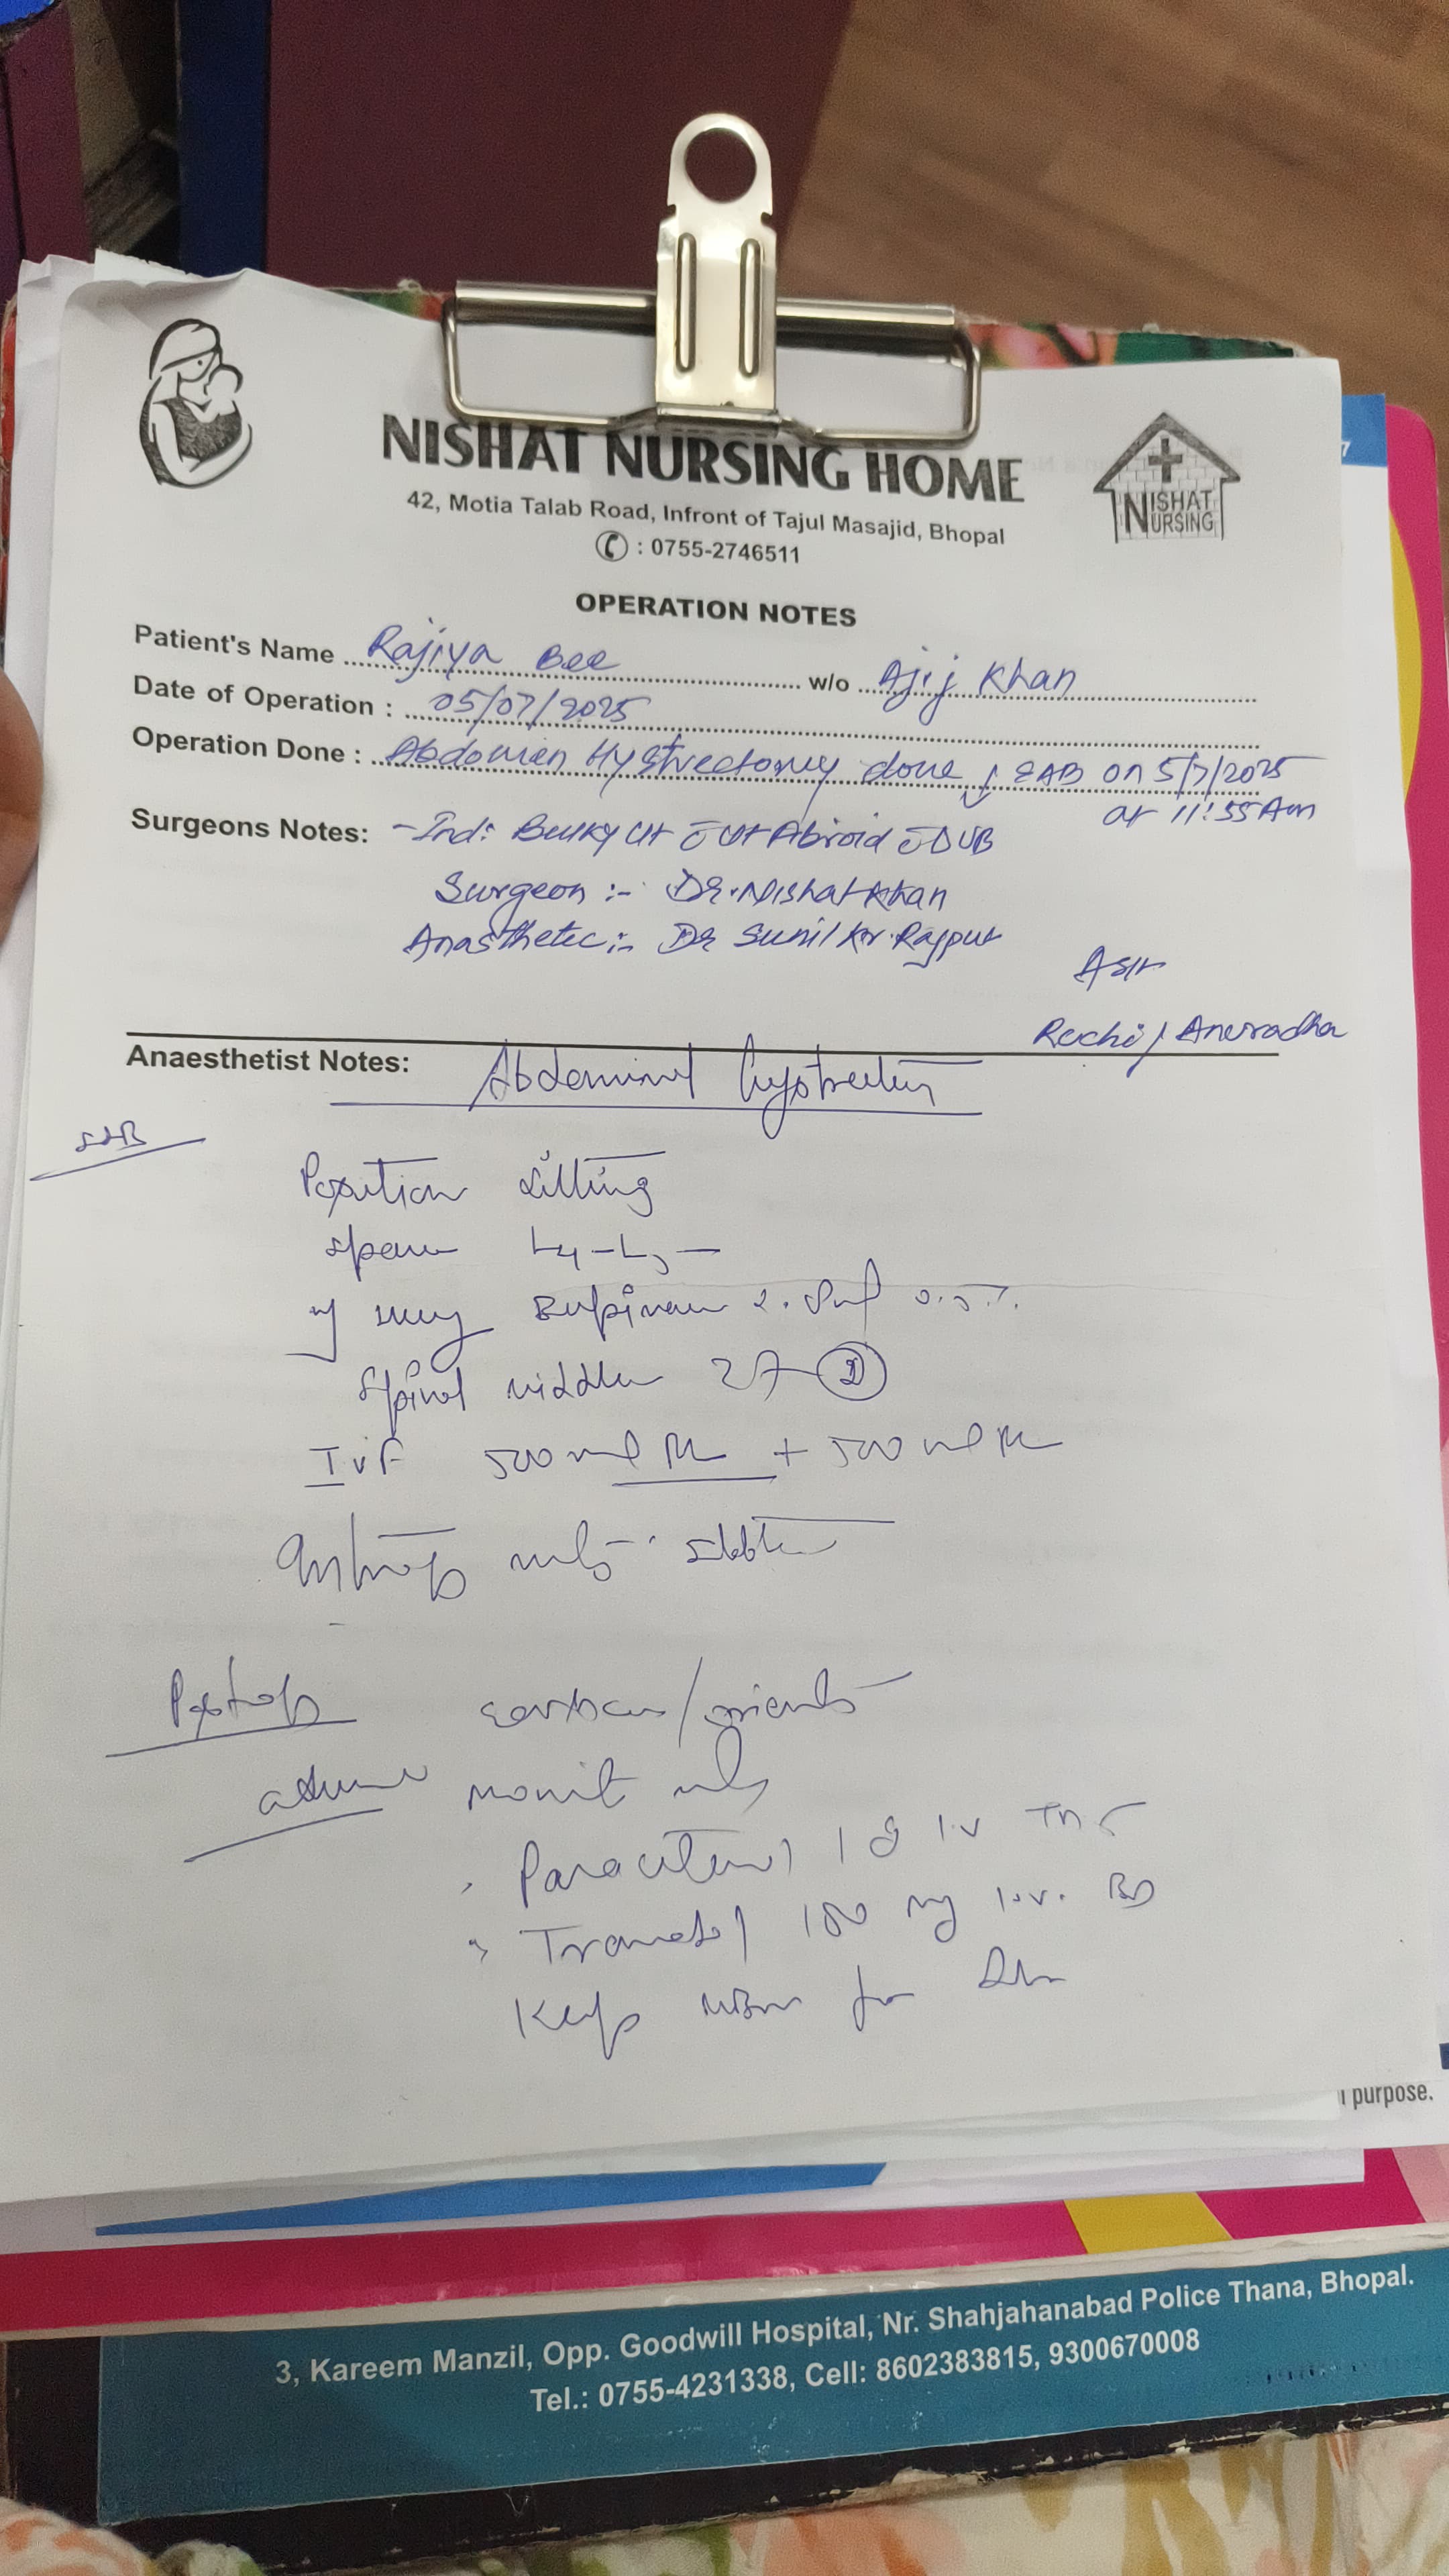 NISHAT NURSING HOME
42, Motia Talab Road, Infront of Tajul Masajid, Bhopal
: 0755-2746511
NISHAT NURSING
OPERATION NOTES
Patient's Name Rajiya Bee w/o Ajij Khan
Date of Operation : 05/07/2025
Operation Done : Abdomen Hystrectomy done on 5/7/2025
at 11:55 Am
Surgeons Notes: - Ind: Bulky Ut c̄ Ut Abroid c̄ DUB
Surgeon :- Dr. Nishat Khan
Anasthetec :- Dr Sunil Kr. Rajput
Asst
Ruchi / Anuradha
Anaesthetist Notes: Abdominal
SAB
Position sitting
L4-L3
Spinal 27
IVF 500 ml RL + 500 ml RL
Postop
monit
Paracetamol 1 g I.V TDS
Tramadol 100 mg I.V. BD
Keep NBM for
l purpose.
3, Kareem Manzil, Opp. Goodwill Hospital, Nr. Shahjahanabad Police Thana, Bhopal.
Tel.: 0755-4231338, Cell: 8602383815, 9300670008